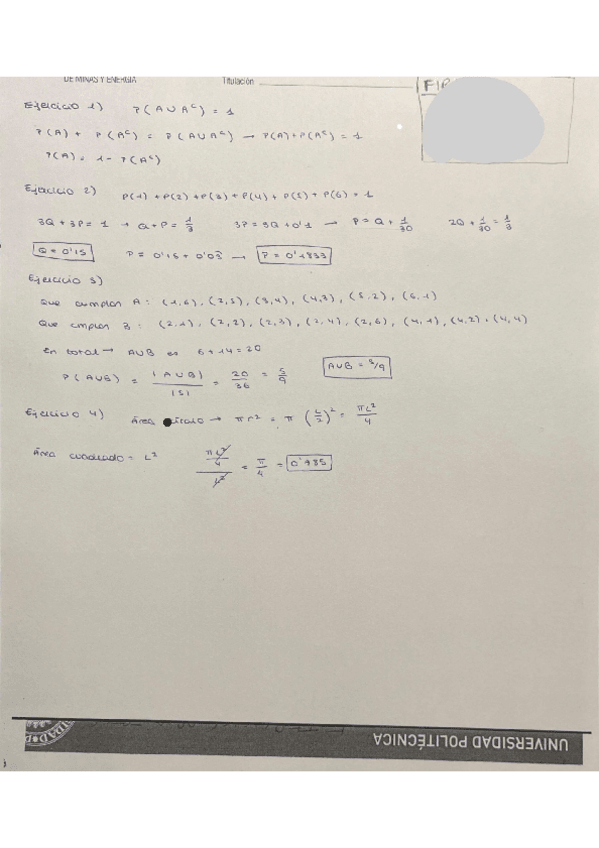 DE MINAS Y ENERGÍA
Titulación
Ejercicio 1) P(A∪Aᶜ) = 1
P(A) + P(Aᶜ) = P(A∪Aᶜ) → P(A)+P(Aᶜ) = 1
P(A) = 1 - P(Aᶜ)
Ejercicio 2) P(1) + P(2) + P(3) + P(4) + P(5) + P(6) = 1
3Q + 3P = 1 → Q + P = 1/3 3P = 3Q + 0'1 → P = Q + 1/30 2Q + 1/30 = 1/3
Q = 0'15 P = 0'15 + 0'03 → P = 0'1833
Ejercicio 3)
Que cumplan A: (1,6), (2,5), (3,4), (4,3), (5,2), (6,1)
Que cumplan B: (2,1), (2,2), (2,3), (2,4), (2,6), (4,1), (4,2), (4,4)
En total → A∪B es 6+14=20
P(A∪B) = |A∪B| / |S| = 20/36 = 5/9 A∪B = 5/9
Ejercicio 4) Área círculo → πr² = π (L/2)² = πL²/4
Área cuadrado = L² πL²/4 / L² = π/4 = 0'785
UNIVERSIDAD POLITÉCNICA